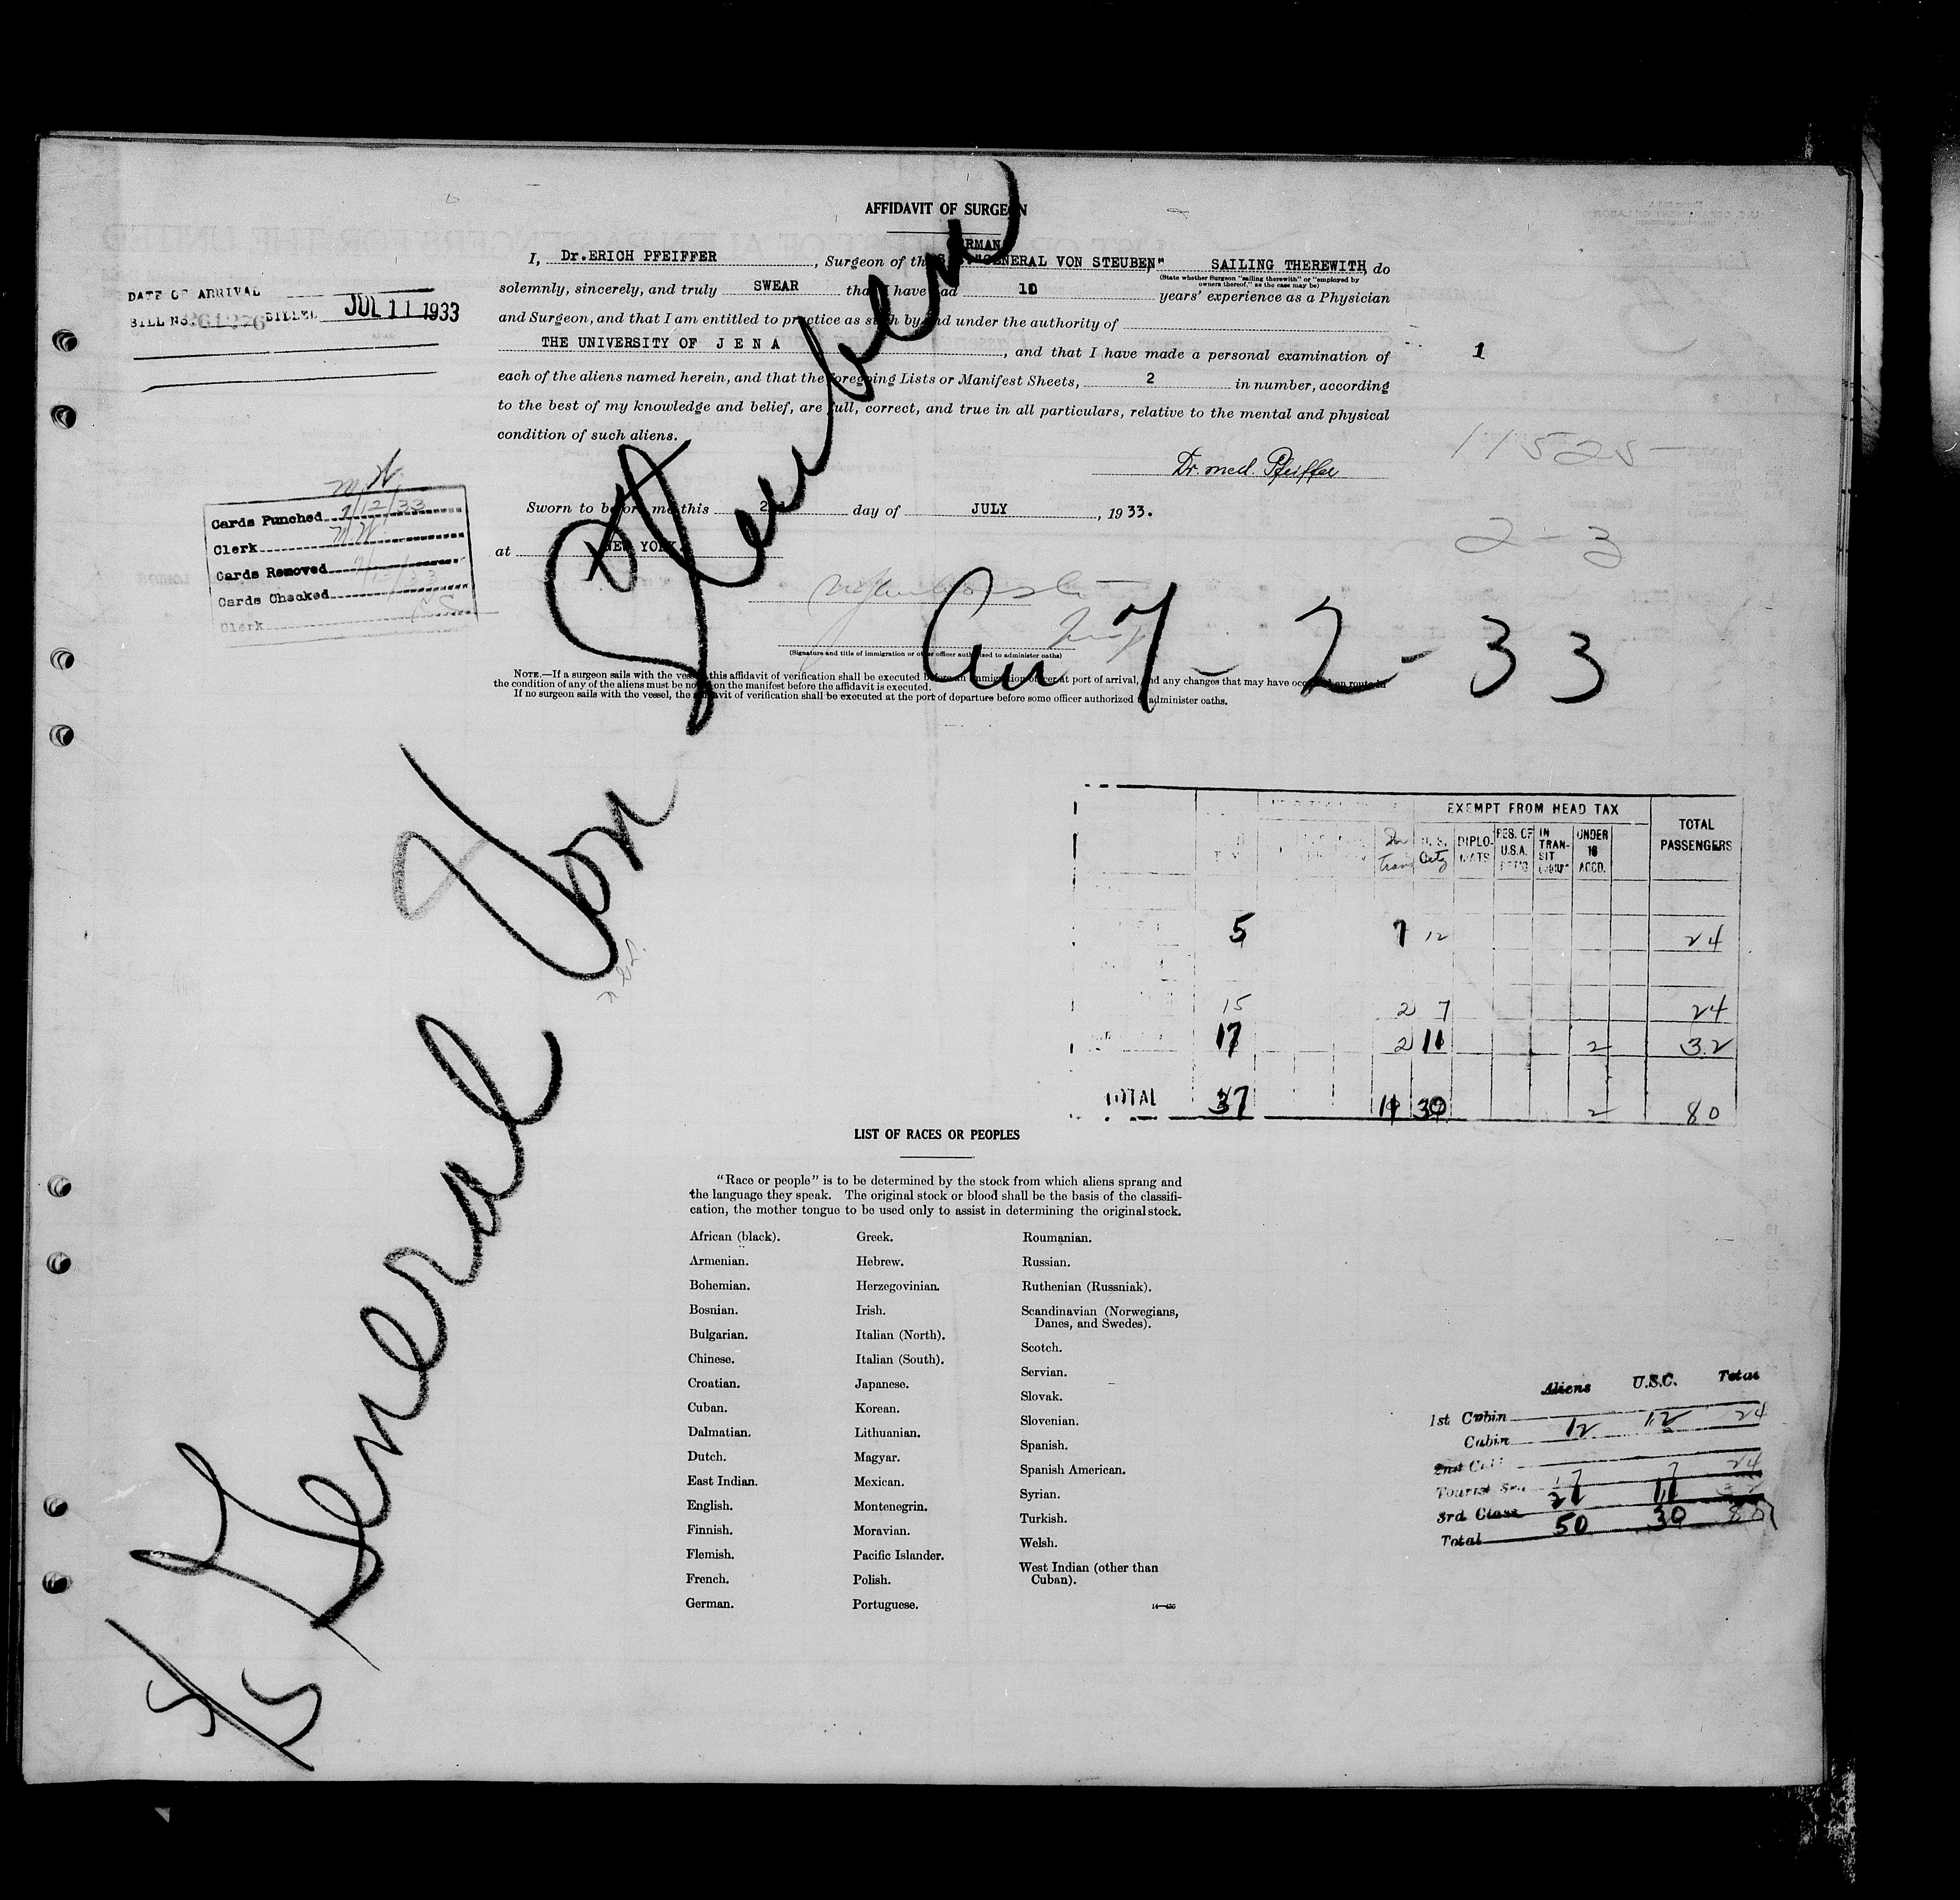 AFFIDAVIT OF SURGEON
I, Dr.ERICH PFEIFFER, Surgeon of the "GENERAL VON STEUBEN" SAILING THEREWITH, do
(State whether Surgeon "sailing therewith" or "employed by
owners thereof," as the case may be)
solemnly, sincerely, and truly SWEAR that I have had 10 years' experience as a Physician
and Surgeon, and that I am entitled to practice as such by and under the authority of
THE UNIVERSITY OF J E N A, and that I have made a personal examination of
each of the aliens named herein, and that the foregoing Lists or Manifest Sheets, 2 in number, according
to the best of my knowledge and belief, are full, correct, and true in all particulars, relative to the mental and physical
condition of such aliens.
Dr. med. Pfeiffer
Sworn to before me this day of JULY, 1933.
at NEW YORK
(Signature and title of immigration or other officer authorized to administer oaths)
NOTE.—If a surgeon sails with the vessel, this affidavit of verification shall be executed before an immigration officer at port of arrival, and any changes that may have occurred en route in
the condition of any of the aliens must be noted on the manifest before the affidavit is executed.
If no surgeon sails with the vessel, the affidavit of verification shall be executed at the port of departure before some officer authorized to administer oaths.
DATE OF ARRIVAL
BILL NO. BILLED JUL 11 1933
1
11525
2-3
Cards Punched 7/12/33
Clerk
Cards Removed
Cards Checked
Clerk
S/S General Von Steuben
7-2-33
EXEMPT FROM HEAD TAX
TOTAL PASSENGERS
U.S. Citz DIPLO-MATS RES. OF U.S.A. IN TRAN-SIT UNDER 16 ACCD.
5 7 12 24
15 2 7 24
17 2 11 2 32
TOTAL 37 11 30 2 80
LIST OF RACES OR PEOPLES
"Race or people" is to be determined by the stock from which aliens sprang and
the language they speak. The original stock or blood shall be the basis of the classifi-
cation, the mother tongue to be used only to assist in determining the original stock.
African (black).
Armenian.
Bohemian.
Bosnian.
Bulgarian.
Chinese.
Croatian.
Cuban.
Dalmatian.
Dutch.
East Indian.
English.
Finnish.
Flemish.
French.
German.
Greek.
Hebrew.
Herzegovinian.
Irish.
Italian (North).
Italian (South).
Japanese.
Korean.
Lithuanian.
Magyar.
Mexican.
Montenegrin.
Moravian.
Pacific Islander.
Polish.
Portuguese.
Roumanian.
Russian.
Ruthenian (Russniak).
Scandinavian (Norwegians,
Danes, and Swedes).
Scotch.
Servian.
Slovak.
Slovenian.
Spanish.
Spanish American.
Syrian.
Turkish.
Welsh.
West Indian (other than
Cuban).
Aliens U.S.C. Total
1st Cabin
Cabin 12 12 24
2nd
Tourist 17 7 24
3rd Class 21 11
Total 50 30 80